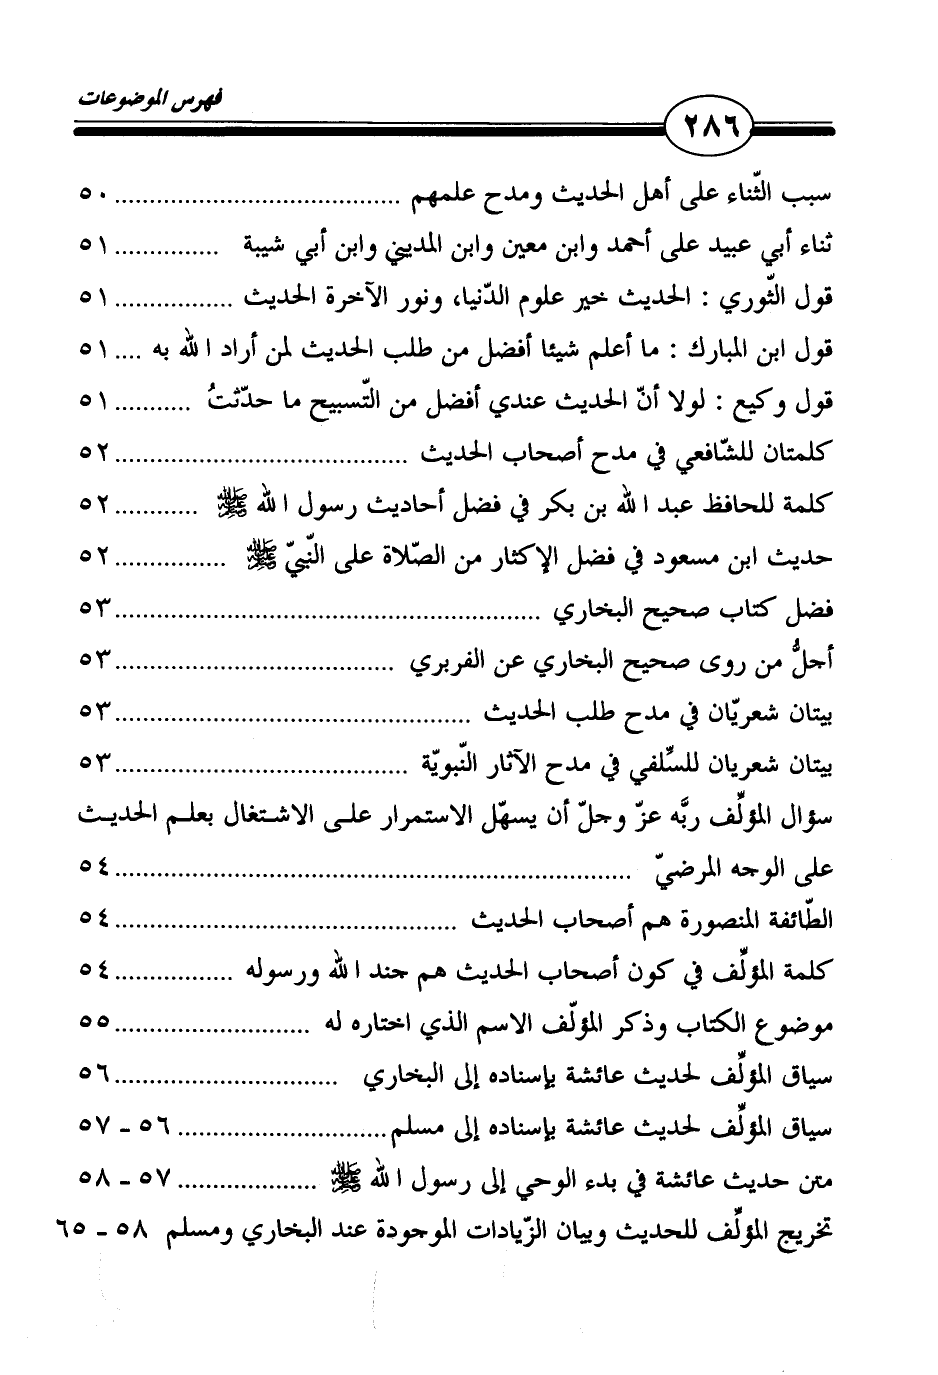 فهرس الموضوعات
٢٨٦
سبب الثّناء على أهل الحديث ومدح علمهم ........................................ ٥٠
ثناء أبي عبيد على أحمد وابن معين وابن المديني وابن أبي شيبة ............... ٥١
قول الثّوري : الحديث خير علوم الدّنيا، ونور الآخرة الحديث ................. ٥١
قول ابن المبارك : ما أعلم شيئا أفضل من طلب الحديث لمن أراد الله به .... ٥١
قول وكيع : لولا أنّ الحديث عندي أفضل من التّسبيح ما حدّثتُ ........... ٥١
كلمتان للشّافعي في مدح أصحاب الحديث .......................................... ٥٢
كلمة للحافظ عبد الله بن بكر في فضل أحاديث رسول الله ﷺ ............ ٥٢
حديث ابن مسعود في فضل الإكثار من الصّلاة على النّبيّ ﷺ ................ ٥٢
فضل كتاب صحيح البخاري ............................................................. ٥٣
أجلُّ من روى صحيح البخاري عن الفربري ........................................ ٥٣
بيتان شعريّان في مدح طلب الحديث .................................................. ٥٣
بيتان شعريان للسِّلفي في مدح الآثار النّبويّة .......................................... ٥٣
سؤال المؤلِّف ربَّه عزّ وجلّ أن يسهّل الاستمرار على الاشتغال بعلم الحديث
على الوجه المرضيّ .......................................................................... ٥٤
الطّائفة المنصورة هم أصحاب الحديث ................................................. ٥٤
كلمة المؤلِّف في كون أصحاب الحديث هم جند الله ورسوله ................. ٥٤
موضوع الكتاب وذكر المؤلّف الاسم الذي اختاره له ............................ ٥٥
سياق المؤلِّف لحديث عائشة بإسناده إلى البخاري ................................ ٥٦
سياق المؤلِّف لحديث عائشة بإسناده إلى مسلم............................... ٥٦ - ٥٧
متن حديث عائشة في بدء الوحي إلى رسول الله ﷺ .................... ٥٧ - ٥٨
تخريج المؤلِّف للحديث وبيان الزّيادات الموجودة عند البخاري ومسلم ٥٨ - ٦٥